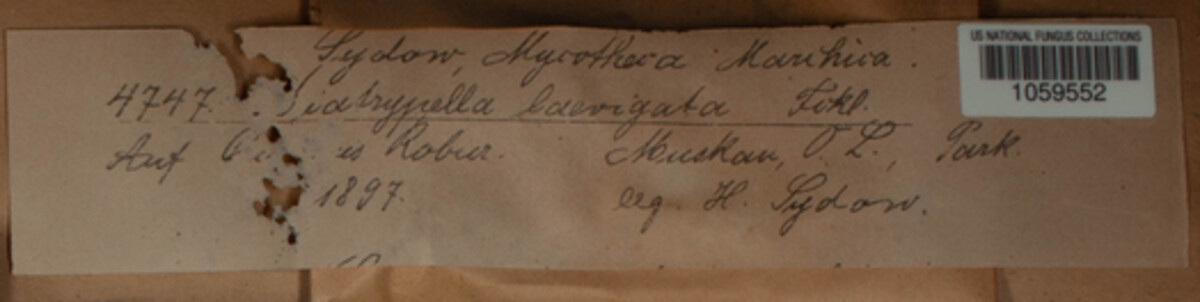 Sydow, Mycotheca Marchica.
4747. Diatrypella laevigata Fckl.
Auf Robur. Muskau, O. L., Park.
1897. leg. H. Sydow.
US NATIONAL FUNGUS COLLECTIONS
1059552